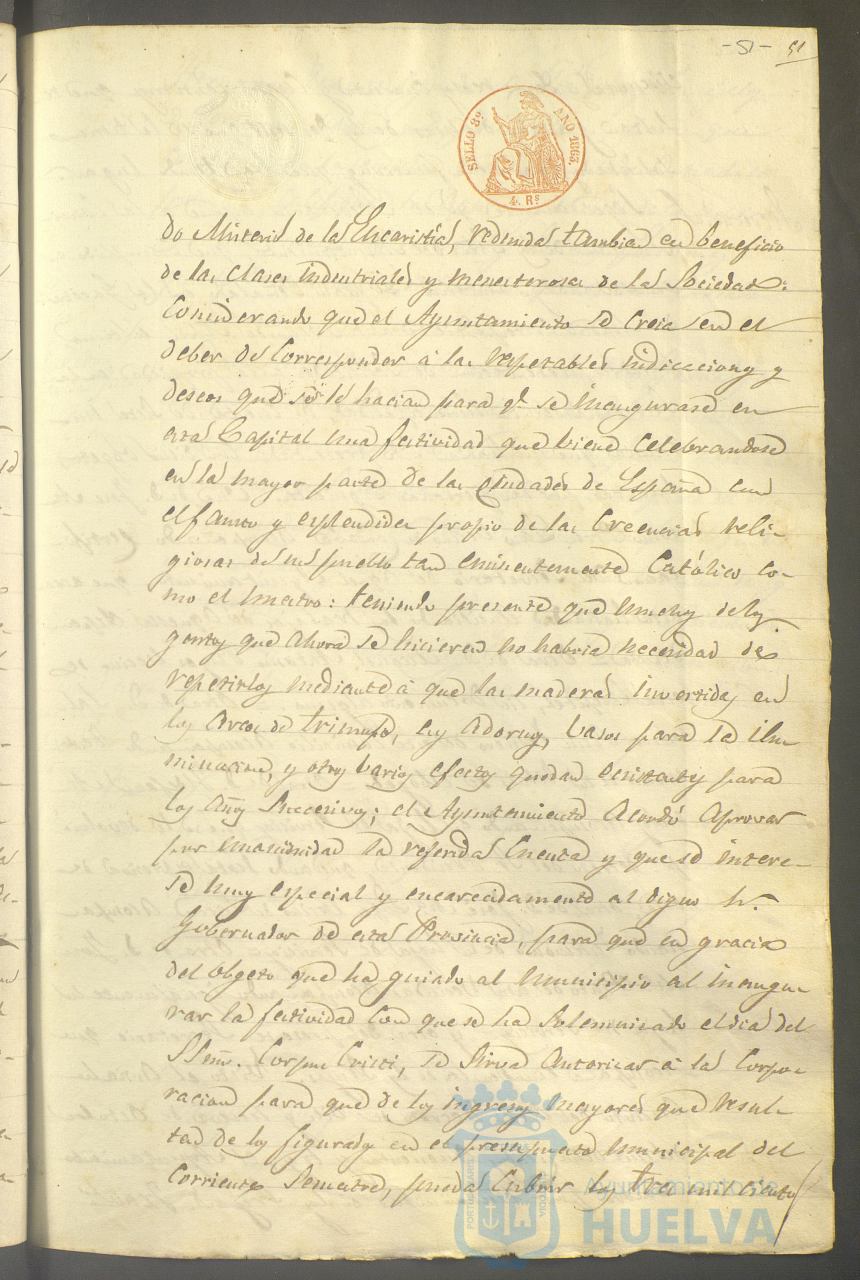 -51- 51
SELLO 3º AÑO 1863.
4. Rs
do Misterio de la Eucaristia, redunda tambien en beneficio
de las clases industriales y menesterosas de la Sociedad:
Considerando que el Ayuntamiento se creia en el
deber de corresponder á las respetables indicaciones y
deseos que se le hacian para qe. se inaugurase en
esta Capital una festividad que viene celebrandose
en la mayor parte de las Ciudades de España con
el fausto y esplendidez propio de las Creencias reli-
giosas de un pueblo tan eminentemente Católico co-
mo el nuestro: teniendo presente que muchos de los
gastos que ahora se hicieren no habria necesidad de
repetirlos mediante á que las maderas invertidas en
los arcos de triunfo, los adornos, vasos para la ilu-
minacion, y otros varios efectos quedan ecsistentes para
los años sucesivos; el Ayuntamiento acordó aprovar
por unanimidad la referida Cuenta y que se intere-
se muy especial y encarecidamente al digno Sr.
Gobernador de esta Provincia, para que en gracia
del obgeto que ha guiado al Municipio al inaugu-
rar la festividad con que se ha solemnizado el dia del
SSmo. Corpus Cristi, se sirva autorizar á la Corpo-
racion para que de los ingresos mayores que resul-
tan de los figurados en el presupuesto municipal del
Corriente Semestre, pueda cubrir los tres mil ciento
Ayuntamiento de
HUELVA